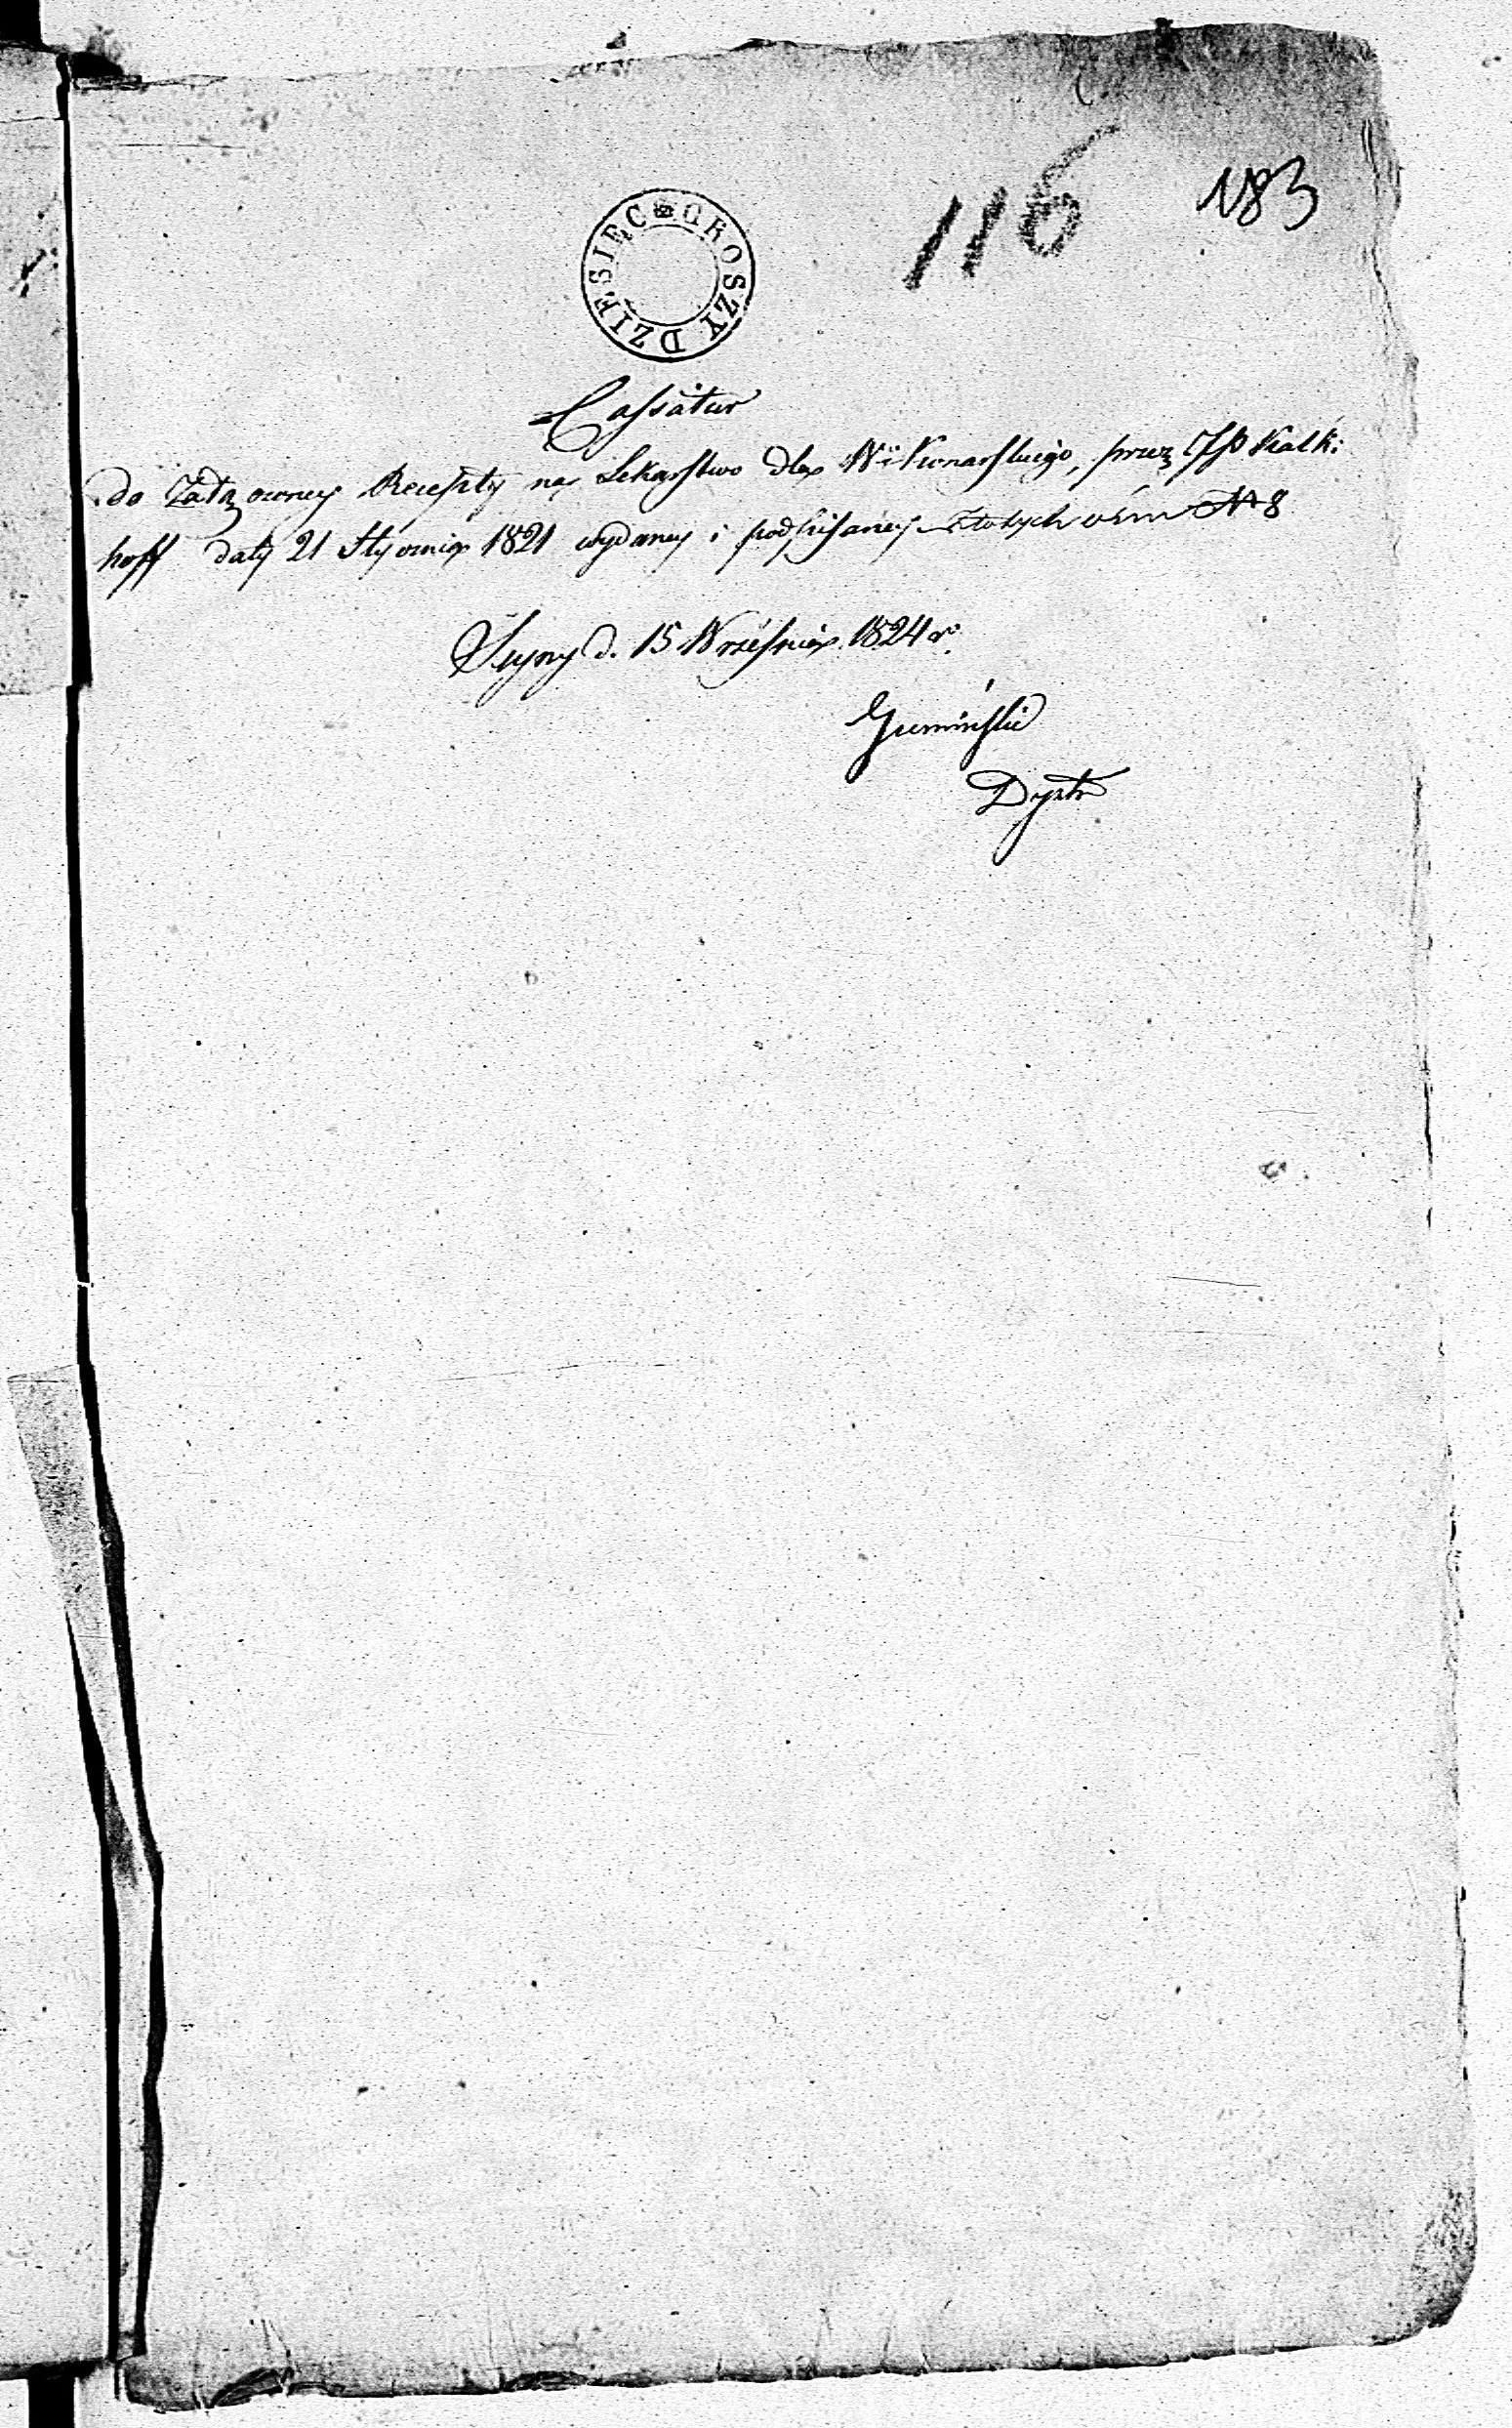 116 183
GROSZY DZIESIĘC
Cassatur
do Załączoney Recepty na Lekarstwo dla W. Konarskiego, przez JP Kalk:
hoff daty 21 Stycznia 1821 wydaney i podpisaney Złotych ośm N 8
Seyny d. 15 Wrzesnia 1824 r.
Gumiński